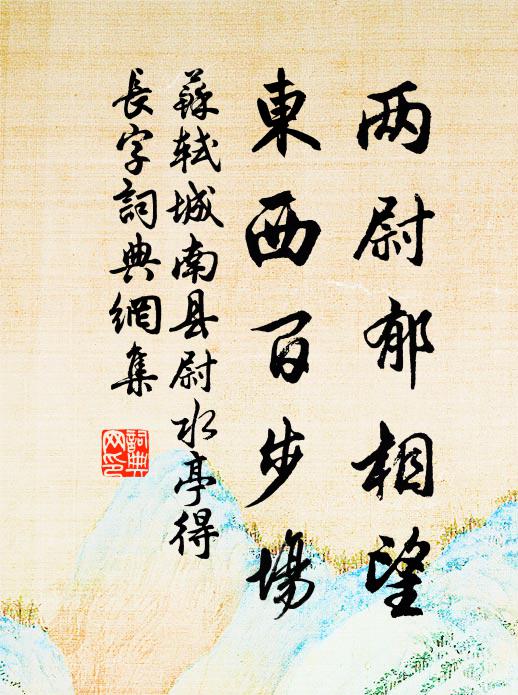 两尉郁相望
東西百步場
蘇轼城南县尉水亭得
長字詞典網集
詞典
网印